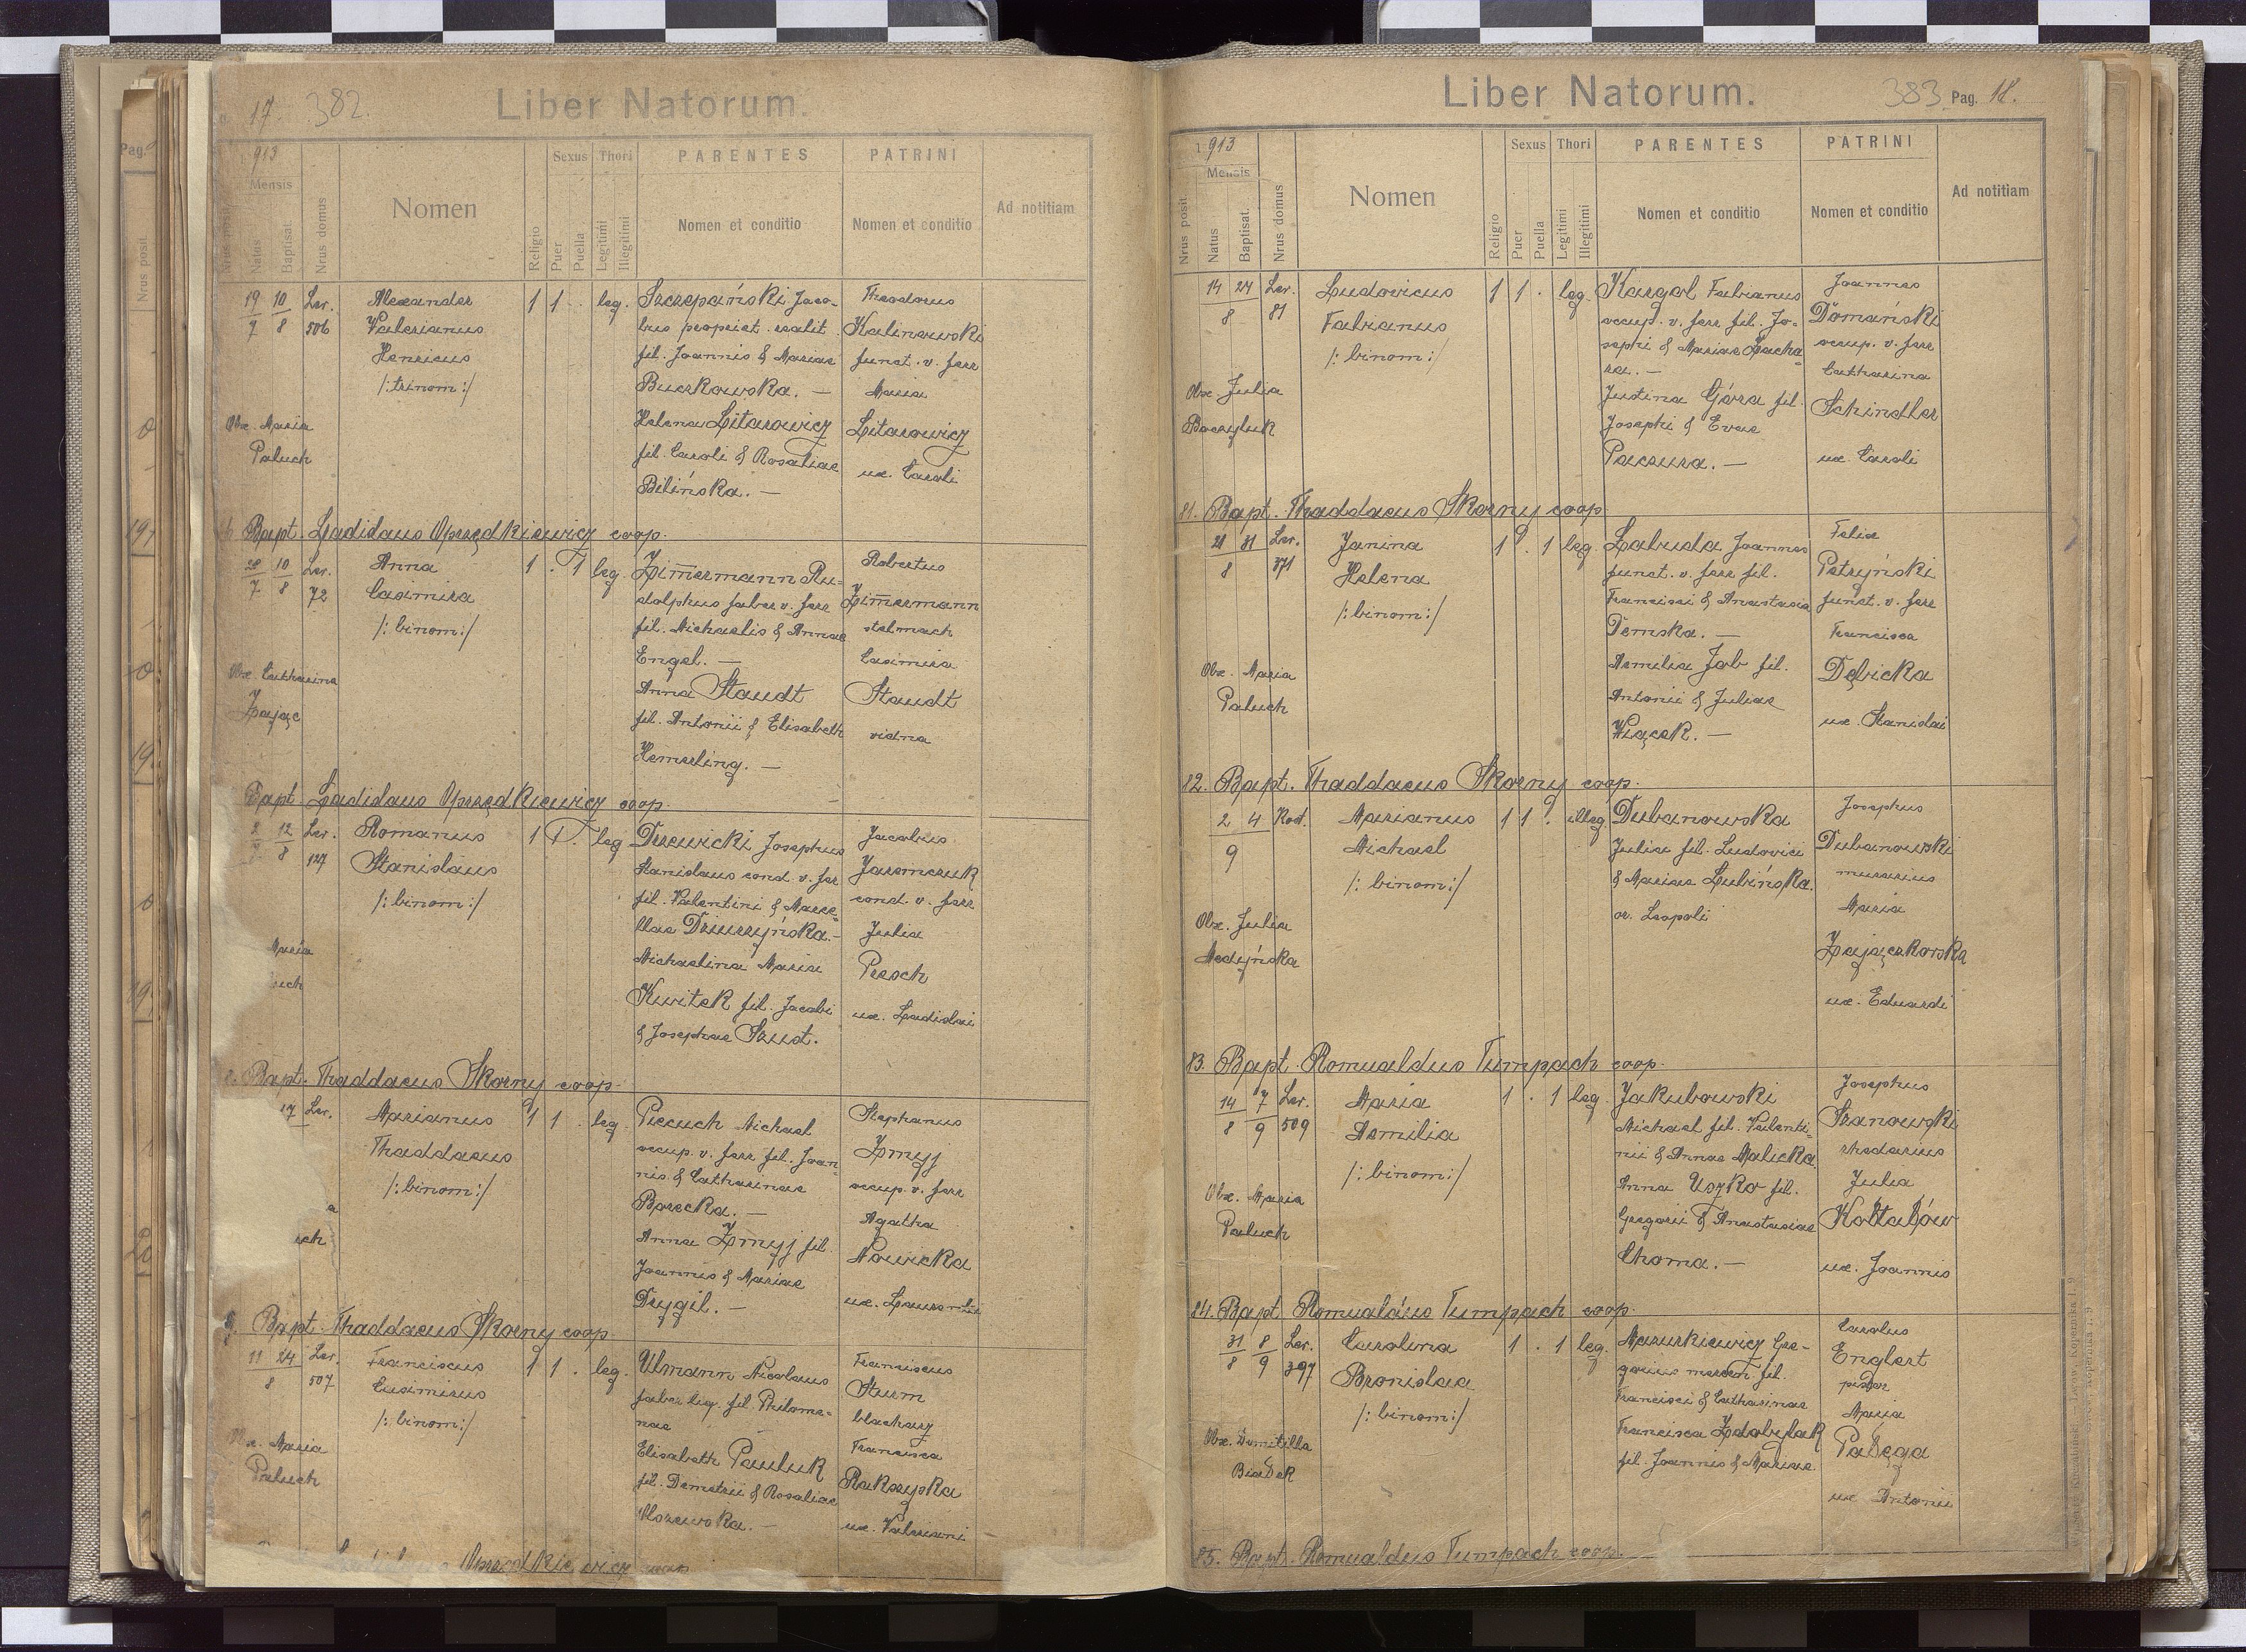 Pag.
17. 382.
Liber Natorum.
1913
Mensis
Nrus posit.
Natus
Baptisat.
Nrus domus
Nomen
Religio
Sexus
Puer
Puella
Thori
Legitimi
Illegitimi
PARENTES
Nomen et conditio
PATRINI
Nomen et conditio
Ad notitiam
19 10 Ler. Alexander 1 1 . leg. Szczepański Jaco- Theodorus
7 8 506 Valerianus bus propriet. realit. Kalinowski
Henricus fil. Joannis & Mariae funct. v. ferr
/:trinom:/ Buczkowska. — Maria
Obx. Maria Helena Litarowicz Litarowicz
Paluch fil. Caroli & Rosaliae ux. Caroli
Bilińska. —
Bapt. Ladislaus Oprzędkiewicz coop.
28 10 Ler. Anna 1 . 1 leg. Zimmermann Ru- Robertus
7 8 72 Casimira dolphus faber v. ferr Zimmermann
/:binom:/ fil. Michaelis & Annae stelmach
Engel. — Casimira
Obx. Catharina Anna Staudt Staudt
Zając fil. Antonii & Elisabeth vidua
Hemerling. —
Bapt. Ladislaus Oprzędkiewicz coop.
12 Ler. Romanus 1 1 . leg. Drzewicki Josephus Jacobus
8 127 Stanislaus Stanislaus cond. v. ferr Jaremczuk
/:binom:/ fil. Valentini & Marce- cond. v. ferr
llae Dziurzyńska. — Julia
Maria Michaelina Maria Pesoch
uch Kwitek fil. Jacobi ux. Ladislai
& Josephae Szust.
Bapt. Thaddaeus Skorny coop.
17 Ler. Marianus 1 1 . leg. Piecuch Michael Stephanus
Thaddaeus occup. v. ferr fil. Joan- Zmyj
/:binom:/ nis & Catharinae occup. v. ferr
a Borecka. — Agatha
uch Anna Zmyj fil. Nowicka
Joannis & Mariae ux. Laurentii
Drygil. —
9. Bapt. Thaddaeus Skorny coop.
11 24 Ler. Franciscus 1 1 . leg. Ulmann Nicolaus Franciscus
8 507 Casimirus faber lig. fil. Philome- Sturm
/:binom:/ nae blacharz
Obx. Maria Elisabeth Pauluk Francisca
Paluch fil. Demetrii & Rosaliae Rakszypka
ux. Valeriani
Oprzędkiewicz coop.
Liber Natorum.
383 Pag. 18.
1913
Mensis
Nrus posit.
Natus
Baptisat.
Nrus domus
Nomen
Religio
Sexus
Puer
Puella
Thori
Legitimi
Illegitimi
PARENTES
Nomen et conditio
PATRINI
Nomen et conditio
Ad notitiam
14 24 Ler. Ludovicus 1 1 . leg. Kargol Fabianus Joannes
8 81 Fabianus occup. v. ferr fil. Jo- Domański
/:binom:/ sephi & Mariae Zacha- occup. v. ferr
ra. — Catharina
Obx. Julia Justina Góra fil. Schindler
Baczyluk Josephi & Evae
Paczura. — ux. Caroli
81. Bapt. Thaddaeus Skorny coop.
21 31 Ler. Janina 1 . 1 leg. Labuda Joannes Felix
8 371 Helena funct. v. ferr fil. Petryński
/:binom:/ Francisci & Anastasia funct. v. ferr
Demska. — Francisca
Obx. Maria Aemilia Job fil. Dębicka
Paluch Antonii & Juliae ux. Stanislai
Wiącek. —
82. Bapt. Thaddaeus Skorny coop.
2 4 Kod. Marianus 1 1 . illeg. Dubanowska Josephus
9 Michael Julia fil. Ludovici Dubanowski
/:binom:/ & Mariae Lubińska. murarius
or. Leopoli Maria
Obx. Julia Zajączkowska
Medyńska ux. Eduardi
83. Bapt. Romualdus Tumpach coop.
14 7 Ler. Maria 1 . 1 leg. Jakubowski Josephus
8 9 509 Aemilia Michael fil. Valenti- Szanowski
/:binom:/ nii & Annae Malicka. rhedarius
Obx. Maria Anna Uszko fil. Julia
Paluch Gregorii & Anastasiae Kołtałów
Choma. — ux. Joannis
84. Bapt. Romualdus Tumpach coop.
31 8 Ler. Carolina 1 . 1 leg. Mazurkiewicz Gre- Carolus
8 9 397 Bronislaa gorius mercen. fil. Englert
/:binom:/ Francisci & Catharinae pistor
Obx. Domitilla Francisca Zdobylak Maria
Białek fil. Joannis & Mariae. Pałęga
ux. Antonii
85. Bapt. Romualdus Tumpach coop.